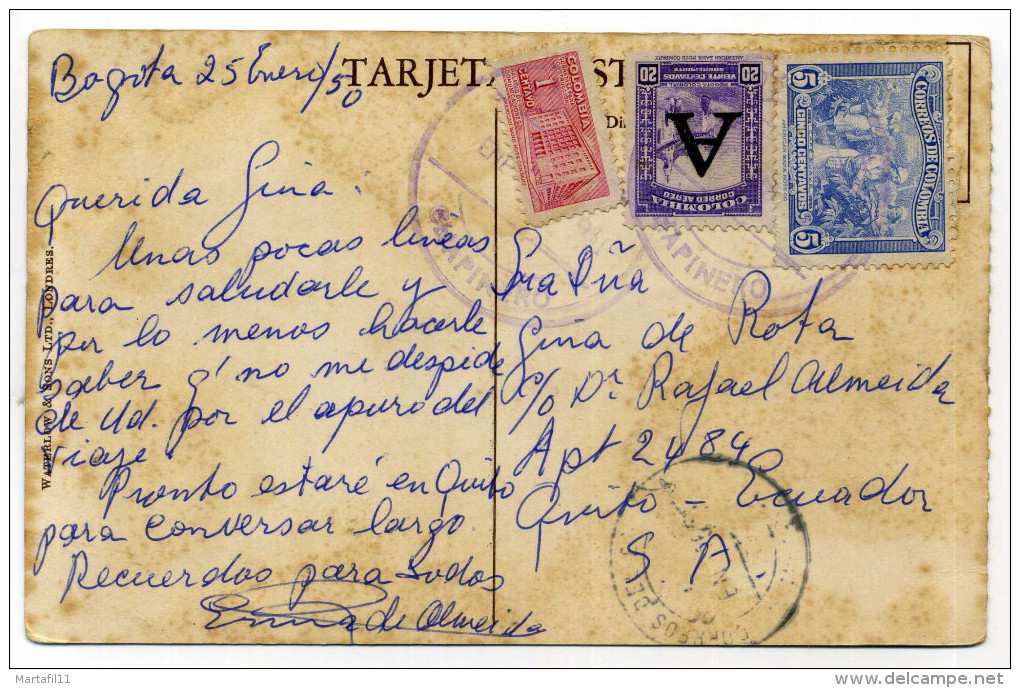 Bogota 25 Enero/50
TARJETA POST
Di
Querida Gina:
Unas pocas lineas
para saludarle y
por lo menos hacerle
saber q' no me despide
de Ud. por el apuro del
viaje.
Pronto estaré en Quito
para conversar largo.
Recuerdos para todos
de Almeida
WATERLOW & SONS LTD., LONDRES.
COLOMBIA
1
CENTAVO
20
VEINTE CENTAVOS
SOBREPORTE
20
A
COLOMBIA
CORREO AEREO
5
CINCO CENTAVOS
5
CORREOS DE COLOMBIA
CHAPINERO
CHAPINERO
Sra Dña
Gina de Rota
c/o Dr Rafael Almeida
Apt 2484
Quito - Ecuador
S. A.
CORREOS DE
Martafil11
delcampe.net